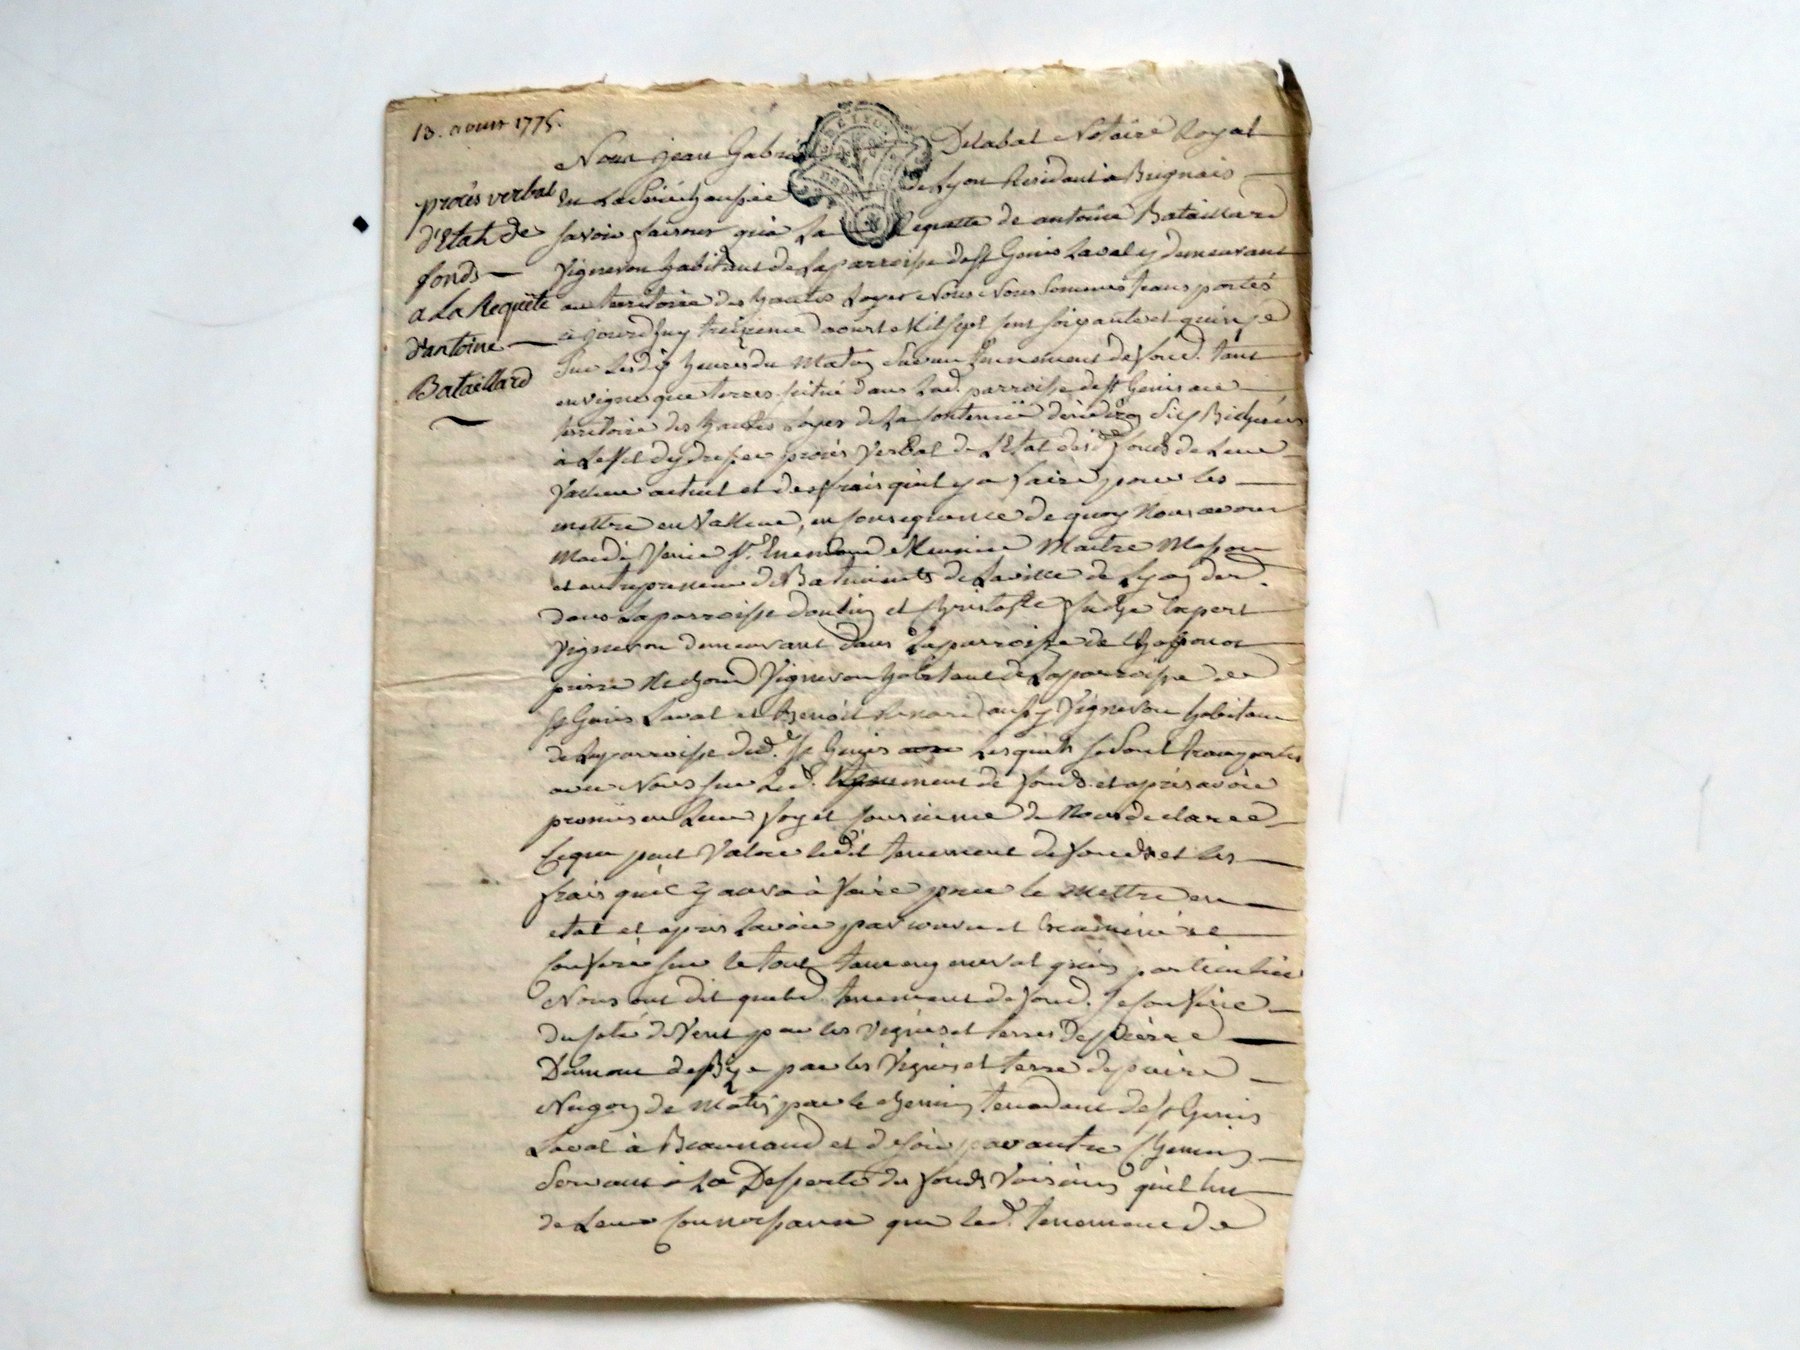 13. aoust 1775.
procès verbal
d'Etat de
fonds
a La Requête
d'antoine
Bataillard
Nous jean Gabriel Delabat Notaire Royal
En La Sénéchaussée de Lyon Residant à Brignais
savoir faisons qu'à La Requette de antoine Bataillard
Vigneron habitant de La parroisse de st Genis Laval y demeurant
au territoire des hautes Loyes Nous Nous sommes transportés
à jourdhuy treizieme aoust Mil sept cent soixante et quinze
Sur Les dix heures du Matin sur un tennement de fond. tant
en vigne que terres situé dans Lad. parroisse de st Genis au
territoire des hautes Loyes de La contenüe d'environ dix Bicherées
à L'effet d'y dresser procès verbal de L'Etat desd. fonds de Leur
Valleur actuel et des frais qu'il y a faire pour les
mettre en valleur, en consequence de quoy Nous avons
Mandé Venir Sr. Meunier Maitre Masson
et entrepreneur de Batiments de La ville de Lyon dem.
dans La parroisse et Christofle expert
Vigneron demeurant dans La parroisse de Chaponot
pierre Vigneron habitant de La parroisse de
St Genis Laval et Benoit aussy Vigneron habitant
de La parroisse dud. St Genis Lesquels se sont transportés
avec Nous sur Led. tennement de fonds et après avoir
promis en Leur foy et conscience de Nous déclarer
Ce que peut Valoir ledit tennement de fonds et les
frais qu'il y aura à faire pour le Mettre en
etat et apres L'avoir parcouru et Examiné et
Conféré sur le tout tant en general qu'en particulier
Nous ont dit que led. tennement de fond. se confine
du coté de Vent par les vignes et terres de pierre
de Bize par les vignes et terre de pierre
de Matin par le chemin tendant de st Genis
Laval à Beaunand et de soir par autre chemin
Servant à La Desserte des fonds Voisins qu'il est
de Leur connoissance que led. tennement de